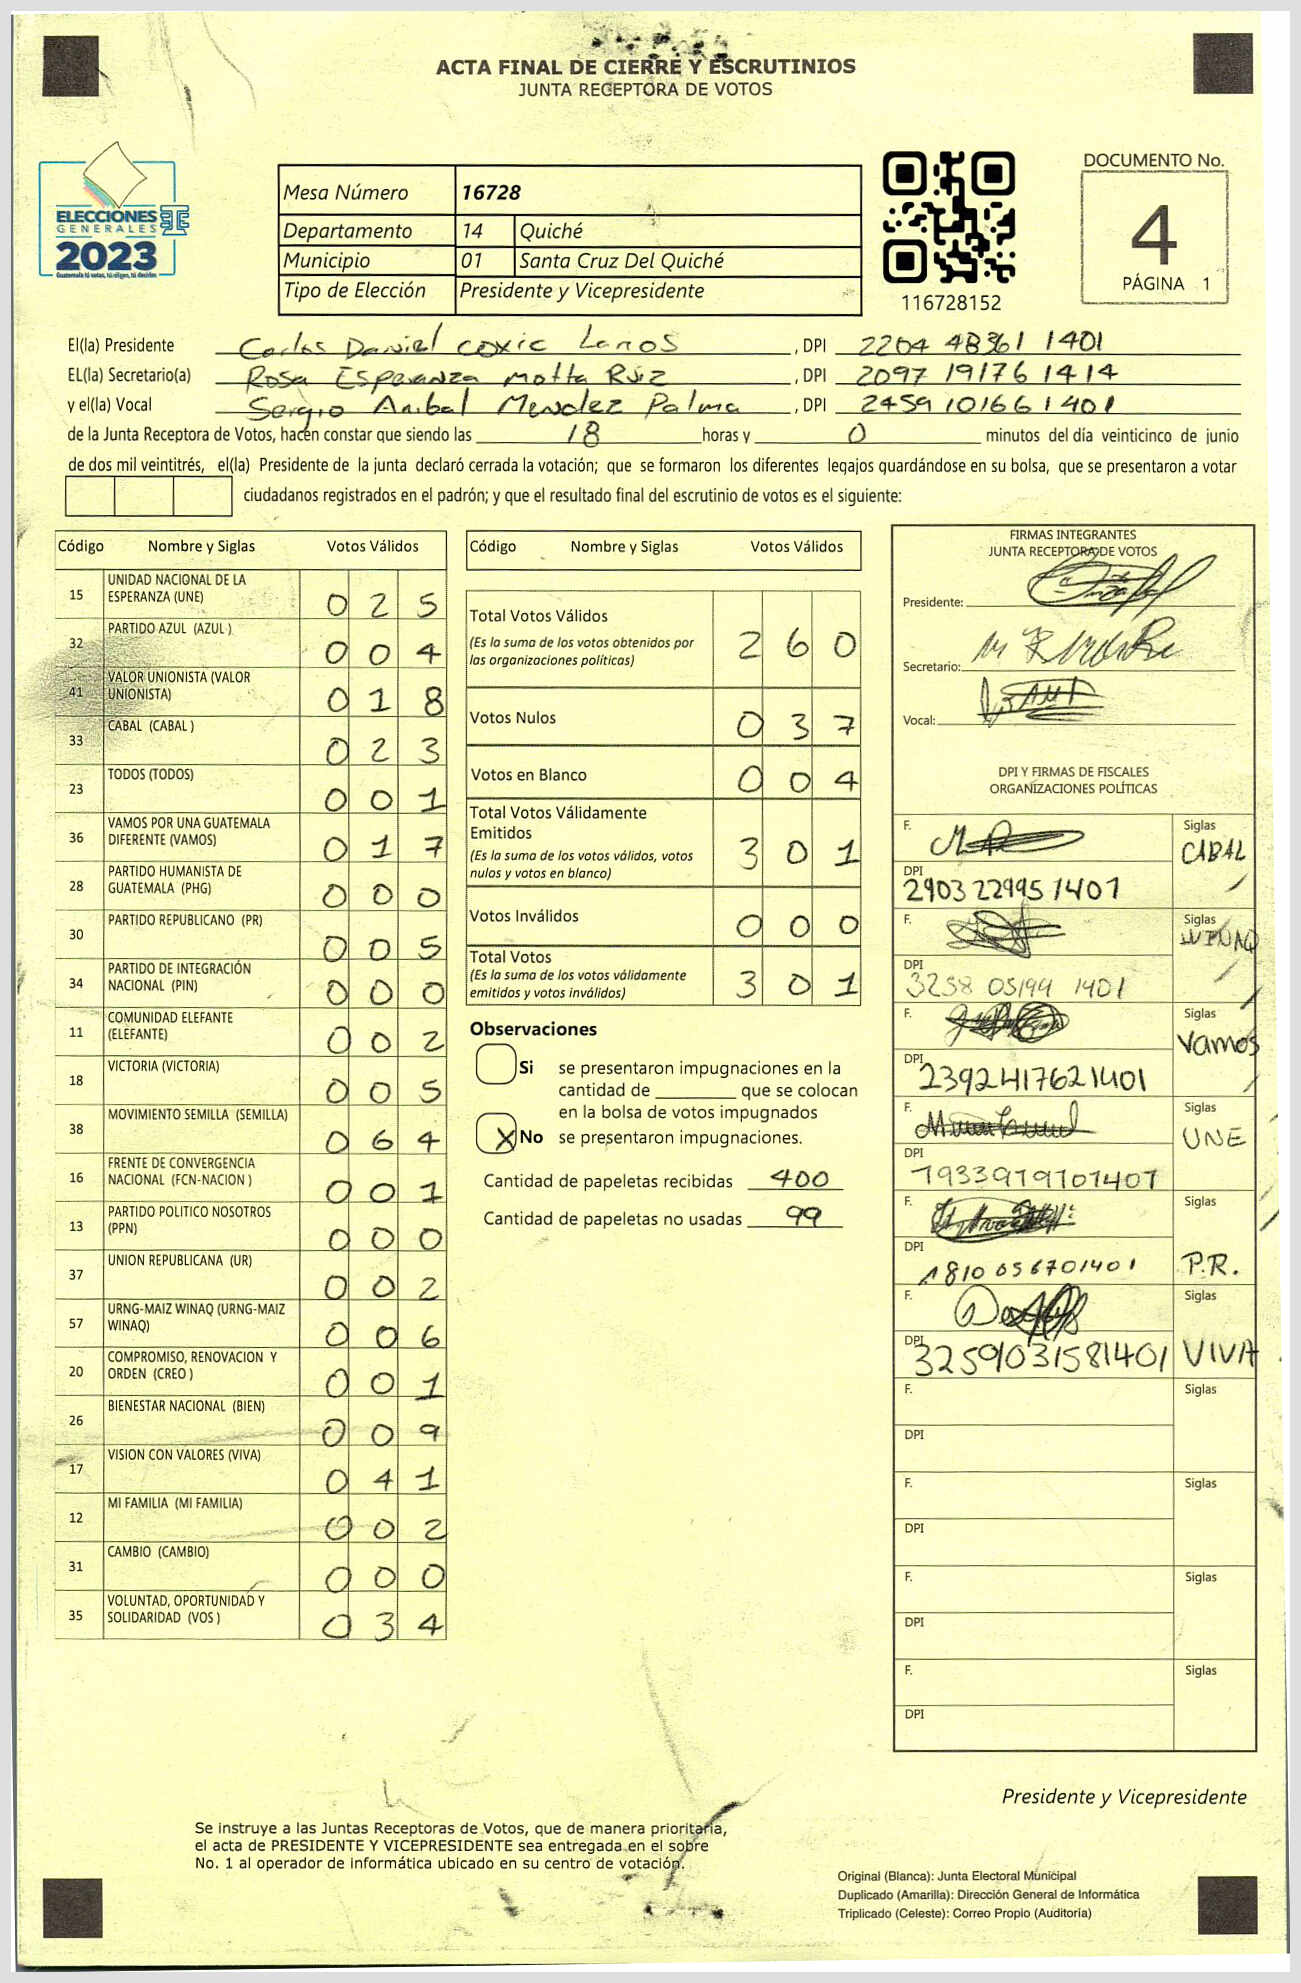 ACTA FINAL DE CIERRE Y ESCRUTINIOS
JUNTA RECEPTORA DE VOTOS
ELECCIONES
GENERALES
2023
Guatemala tú votas, tú eliges, tú decides
Mesa Número 16728
Departamento 14 Quiché
Municipio 01 Santa Cruz Del Quiché
Tipo de Elección Presidente y Vicepresidente
116728152
DOCUMENTO No.
4
PÁGINA 1
El(la) Presidente Carlos Daniel coxic Lanos, DPI 2204 48361 1401
EL(la) Secretario(a) Rosa Esperanza Motta Ruiz, DPI 2097 19176 1414
y el(la) Vocal Sergio Anibal Mendez Palma, DPI 2459 10166 1401
de la Junta Receptora de Votos, hacen constar que siendo las 18 horas y 0 minutos del día veinticinco de junio
de dos mil veintitrés, el(la) Presidente de la junta declaró cerrada la votación; que se formaron los diferentes legajos guardándose en su bolsa, que se presentaron a votar
ciudadanos registrados en el padrón; y que el resultado final del escrutinio de votos es el siguiente:
Código Nombre y Siglas Votos Válidos
15 UNIDAD NACIONAL DE LA ESPERANZA (UNE) 025
32 PARTIDO AZUL (AZUL ) 004
41 VALOR UNIONISTA (VALOR UNIONISTA) 018
33 CABAL (CABAL ) 023
23 TODOS (TODOS) 001
36 VAMOS POR UNA GUATEMALA DIFERENTE (VAMOS) 017
28 PARTIDO HUMANISTA DE GUATEMALA (PHG) 000
30 PARTIDO REPUBLICANO (PR) 005
34 PARTIDO DE INTEGRACIÓN NACIONAL (PIN) 000
11 COMUNIDAD ELEFANTE (ELEFANTE) 002
18 VICTORIA (VICTORIA) 005
38 MOVIMIENTO SEMILLA (SEMILLA) 064
16 FRENTE DE CONVERGENCIA NACIONAL (FCN-NACION ) 001
13 PARTIDO POLITICO NOSOTROS (PPN) 000
37 UNION REPUBLICANA (UR) 002
57 URNG-MAIZ WINAQ (URNG-MAIZ WINAQ) 006
20 COMPROMISO, RENOVACION Y ORDEN (CREO ) 001
26 BIENESTAR NACIONAL (BIEN) 009
17 VISION CON VALORES (VIVA) 041
12 MI FAMILIA (MI FAMILIA) 002
31 CAMBIO (CAMBIO) 000
35 VOLUNTAD, OPORTUNIDAD Y SOLIDARIDAD (VOS ) 034
Código Nombre y Siglas Votos Válidos
Total Votos Válidos 260
(Es la suma de los votos obtenidos por
las organizaciones políticas)
Votos Nulos 037
Votos en Blanco 004
Total Votos Válidamente
Emitidos 301
(Es la suma de los votos válidos, votos
nulos y votos en blanco)
Votos Inválidos 000
Total Votos 301
(Es la suma de los votos válidamente
emitidos y votos inválidos)
Observaciones
Si se presentaron impugnaciones en la
cantidad de ________ que se colocan
en la bolsa de votos impugnados
X No se presentaron impugnaciones.
Cantidad de papeletas recibidas 400
Cantidad de papeletas no usadas 99
FIRMAS INTEGRANTES
JUNTA RECEPTORA DE VOTOS
Presidente:
Secretario:
Vocal:
DPI Y FIRMAS DE FISCALES
ORGANIZACIONES POLÍTICAS
F. Siglas CABAL
DPI 2903 22995 1401
F. Siglas WINAQ
DPI 3258 05194 1401
F. Siglas Vamos
DPI 2392417621401
F. Siglas UNE
DPI 1933979701401
F. Siglas P.R.
DPI 1810 056701401
F. Siglas VIVA
DPI 3259031581401
F. Siglas
DPI
F. Siglas
DPI
F. Siglas
DPI
F. Siglas
DPI
Presidente y Vicepresidente
Se instruye a las Juntas Receptoras de Votos, que de manera prioritaria,
el acta de PRESIDENTE Y VICEPRESIDENTE sea entregada en el sobre
No. 1 al operador de informática ubicado en su centro de votación.
Original (Blanca): Junta Electoral Municipal
Duplicado (Amarilla): Dirección General de Informática
Triplicado (Celeste): Correo Propio (Auditoría)